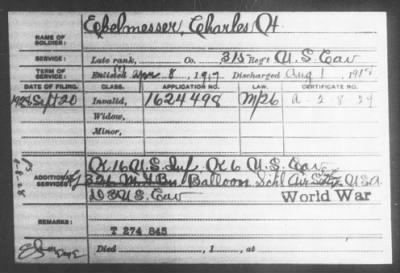 NAME OF SOLDIER: Ebelmesser, Charles A.
SERVICE: Late rank, Co. 31st Reg't U.S. Cav
TERM OF SERVICE: Enlisted Apr 8, 191 Discharged Aug 1, 191
DATE OF FILING. CLASS. APPLICATION NO. LAW. CERTIFICATE NO.
1928 Sept 20 Invalid, 1624498 A-2 8 29
Widow,
Minor,
ADDITIONAL SERVICES: K 16 U.S. Inf, K 6 U.S. Cav
326 M.G. Bn, Balloon Schl Air U.S.A.
U.S. Cav World War
REMARKS: T 274 845
Died , 1 , at